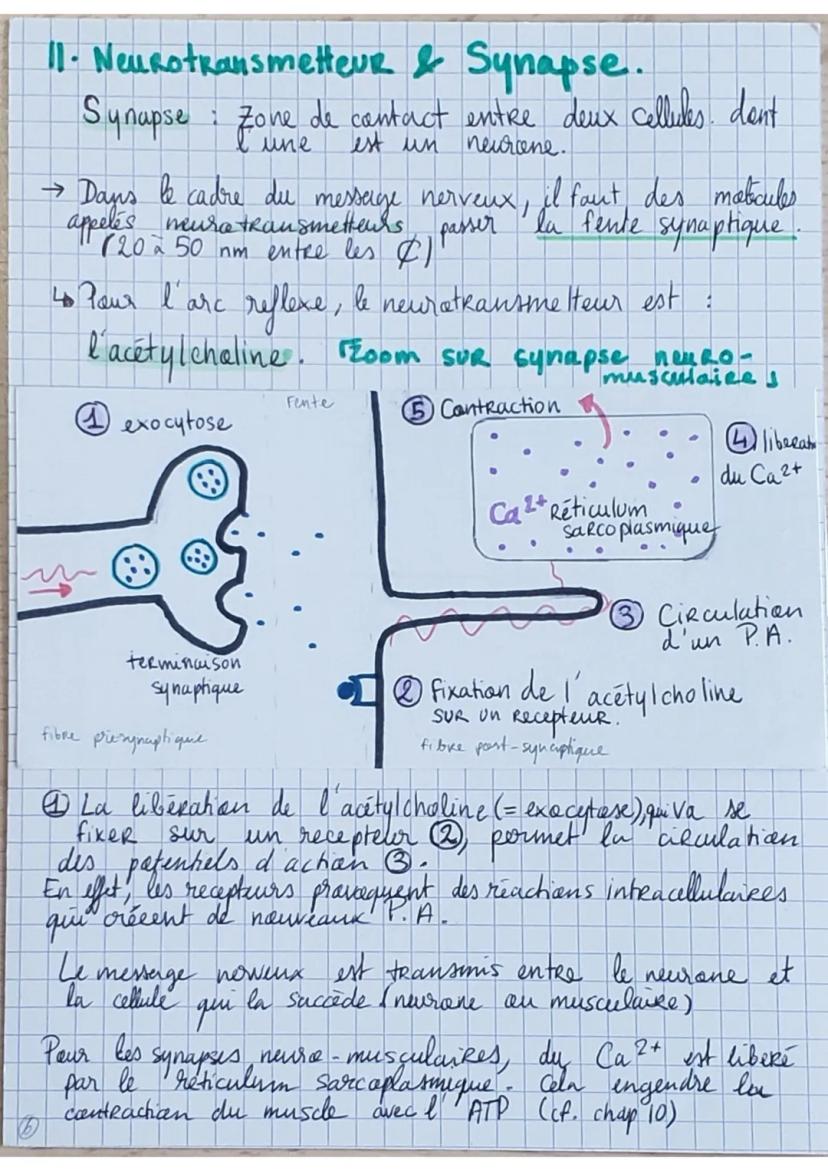 II. Neurotransmetteur & Synapse.
Synapse : Zone de contact entre deux cellules. dont
l'une est un neurone.
→ Dans le cadre du message nerveux, il faut des molécules
appelés neurotransmetteurs passer la fente synaptique.
(20 à 50 nm entre les ₵)
↳ Pour l'arc reflexe, le neurotransmetteur est :
l'acétylcholine. Zoom sur synapse neuro-
musculaire
Fente
① exocytose
⑤ Contraction
④ liberat
du Ca²⁺
Ca²⁺ Réticulum
sarcoplasmique
③ Circulation
d'un P.A.
terminaison
synaptique
② Fixation de l'acétylcholine
sur un recepteur.
fibre présynaptique
fibre post-synaptique
① La libération de l'acétylcholine (= exocytose), qui va se
fixer sur un recepteur ②, permet la circulation
des potentiels d'action ③.
En effet, les recepteurs provoquent des réactions intracellulaires
qui créeent de nouveaux P.A.
Le message nerveux est transmis entre le neurone et
la cellule qui la succède (neurone ou musculaire)
Pour les synapses neuro-musculaires, du Ca²⁺ est liberé
par le réticulum sarcoplasmique. Cela engendre la
contraction du muscle avec l'ATP (cf. chap 10)
6